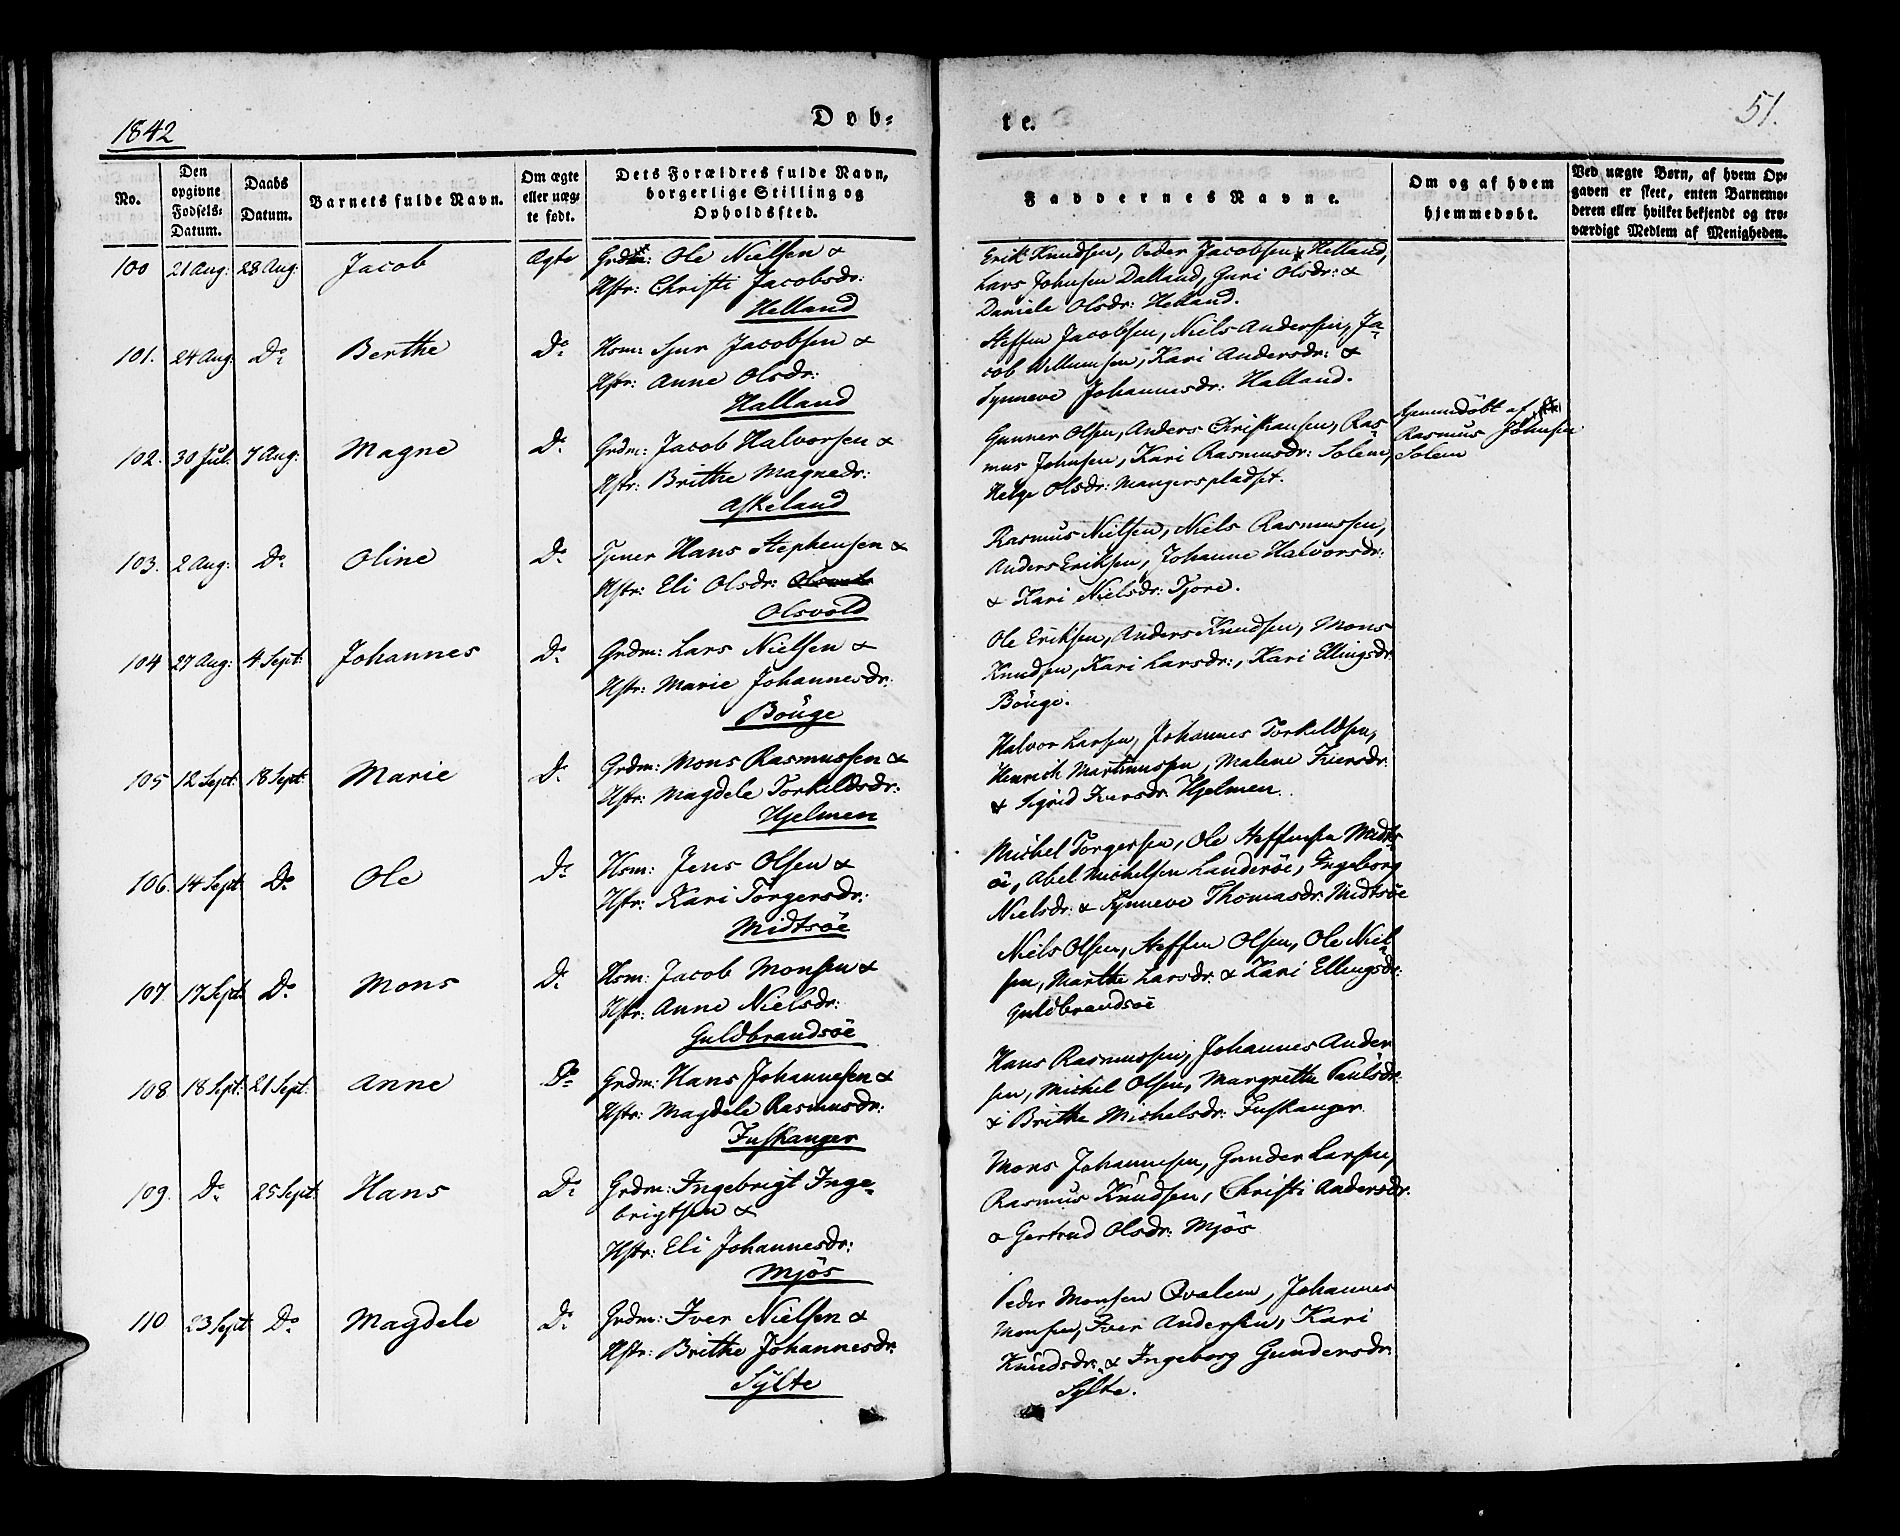 1842
Døb-
te.
51.
No.
Den opgivne Fødsels-Datum.
Daabs Datum.
Barnets fulde Navn.
Om ægte eller uæg-te født.
Dets Forældres fulde Navn, borgerlige Stilling og Opholdssted.
Faddernes Navne.
Om og af hvem hjemmedøbt.
Ved uægte Børn, af hvem Op-gaven er skeet, enten Barnemo-deren eller hvilket bekjendt og tro-værdigt Medlem af Menigheden.
100 21 Aug: 28 Aug: Jacob Ægte Grdm: Ole Nielsen &
Hstr: Christi Jacobsdr:
Helland
Erik Knudsen, Peder Jacobsen, Helland,
Lars Johnsen Dalland, Guri Olsdr: &
Daniele Olsdr: Helland.
101. 24 Aug: Do. Berthe Do. Hsm: Sjur Jacobsen &
Hstr: Anne Olsdr:
Halland
Steffen Jacobsen, Niels Andersen, Ja-
cob Villumsen, Kari Andersdr: &
Synneve Johannesdr: Halland.
102. 30 Jul: 7 Aug: Magne Do. Grdm: Jacob Halvorsen &
Hstr: Brithe Magnedr:
Askeland
Gunner Olsen, Anders Christiansen, Ras-
mus Johnsen, Kari Rasmusdr: Solem,
Helge Olsdr: Mangerspladset.
hjemmedøbt af
Rasmus Johnsen
Solem
103. 2 Aug: Do. Oline Do. Tjener Hans Stephensen &
Hstr: Eli Olsdr:
Olsvold
Rasmus Nielsen, Niels Rasmussen,
Anders Eriksen, Johanne Halvorsdr:
& Kari Nielsdr: Tjore.
104 27 Aug: 4 Sept: Johannes Do. Grdm: Lars Nielsen &
Hstr: Marie Johannesdr:
Böuge
Ole Eriksen, Anders Knudsen, Mons
Knudsen, Kari Larsdr:, Kari Ellingsdr:
Böuge.
105 12 Sept: 18 Sept: Marie Do. Grdm: Mons Rasmussen &
Hstr: Magdele Torkildsdr:
Hjelmen
Halvor Larsen, Johannes Torkildsen,
Henrich Martinussen, Malene Iversdr:
& Sigrid Iversdr: Hjelmen.
106. 14 Sept Do. Ole Do. Hsm: Jens Olsen &
Hstr: Kari Torgersdr:
Midtsöe
Michel Torgersen, Ole Steffensen Midts-
öe, Abel Michelsen Landeröe, Ingeborg
Nielsdr: & Synneve Thomasdr: Midtsöe
107 17 Sept: Do. Mons Do. Hsm: Jacob Monsen &
Hstr: Anne Nielsdr:
Guldbrandsöe
Niels Olsen, Steffen Olsen, Ole Niel-
sen, Marthe Larsdr: & Kari Ellingsdr:
Guldbrandsöe
108 18 Sept: 21 Sept: Anne Do. Grdm: Hans Johannesen &
Hstr: Magdele Rasmusdr:
Fuskanger
Hans Rasmussen, Johannes Ander
sen, Michel Olsen, Margrethe Paulsdr:
& Brithe Michelsdr: Fuskanger
109. Do. 25 Sept: Hans Do. Grdm: Ingebrigt Inge-
brigtsen &
Hstr: Eli Johannesdr:
Mjös
Mons Johannesen, Gunder Larsen,
Rasmus Knudsen, Christi Andersdr:
& Gertrud Olsdr: Mjös
110 23 Sept Do. Magdele Do. Grdm: Iver Nielsen &
Hstr: Brithe Johannesdr:
Sylte
Peder Monsen Qvalem, Johannes
Monsen, Iver Andersen, Kari
Knudsdr: & Ingeborg Gundersdr:
Sylte.